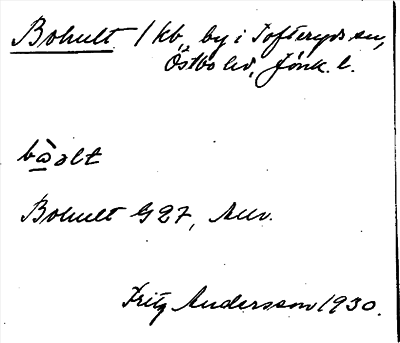 Bohult 1 kb, by i Tofteryds sn,
Östbo hd, Jönk. l.
bò̱əlt
Bohult G 27, Auv.
Fritz Andersson 1930.